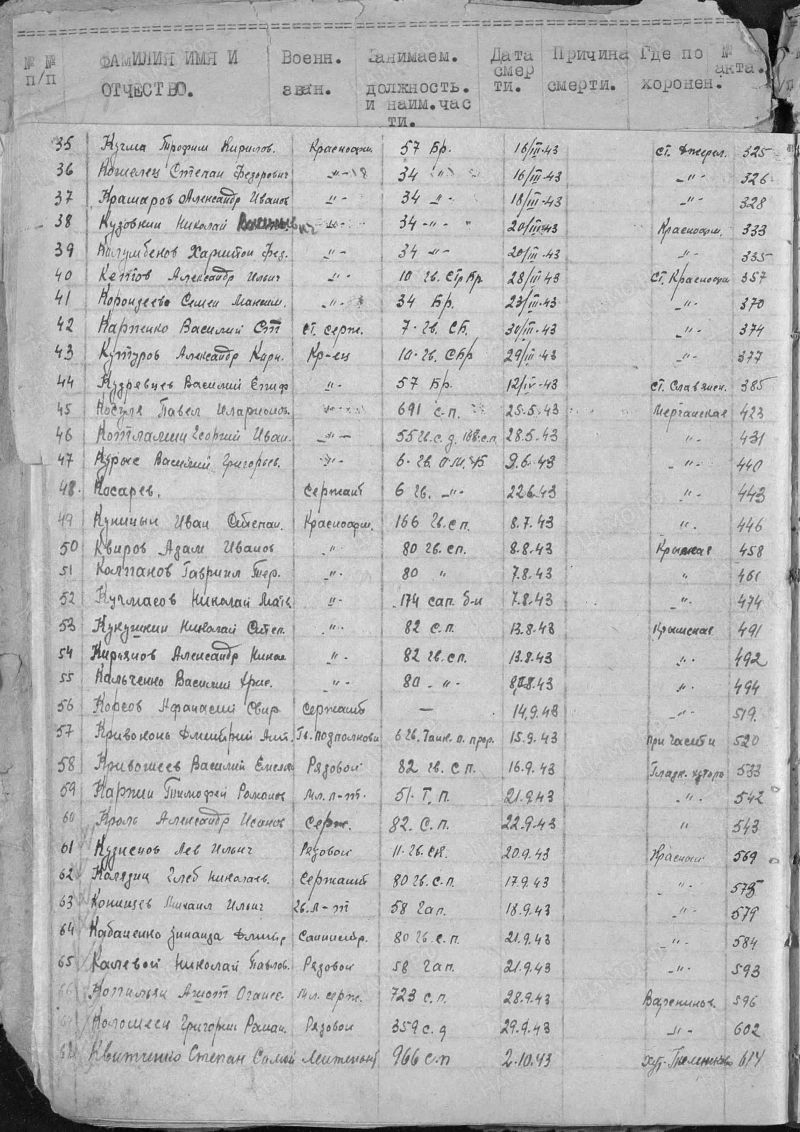 № № п/п ФАМИЛИЯ ИМЯ И ОТЧЕСТВО. Военн. зван. Занимаем. должность. и наим.час ти. Дата смер ти. Причина смерти. Где по хоронен. № акта.
35 Кучма Трофим Кирилов. Красноарм. 57 Бр. 16/III-43 ст. 325
36 Степан Федорович -"- 34 -"- 16/III-43 -"- 326
37 Крамаров Александр Иванов -"- 34 -"- 18/III-43 -"- 328
38 Кузовкин Николай -"- 34 -"- 20/III-43 Красноарм. 333
39 Харитон Фед. -"- 34 -"- 20/III-43 -"- 335
40 Александр Ильич -"- 10 гв. Стр Бр. 28/III-43 ст. Красноарм 357
41 Семен Максим. -"- 34 Бр. 23/III-43 -"- 370
42 Карпенко Василий Ст ст. серж. 7 гв. СБ. 30/III-43 -"- 374
43 Кутуров Александр Кирил. Кр-ец 10 гв. СБР 29/III-43 -"- 377
44 Кудревцев Василий -"- 57 Бр. 12/IV-43 ст. Славянск. 385
45 Косуля Павел Иларионов. -"- 691 с.п. 25.5.43 423
46 Георгий Иван -"- 55 гв. с.д. 168 с.п 28.5.43 -"- 431
47 Василий Григорьев. -"- 6 гв. 9.6.43 -"- 440
48 Косарев. Сержант 6 гв. -"- 22.6.43 -"- 443
49 Куницын Иван Степан. Красноарм. 166 гв. сп. 8.7.43 -"- 446
50 Квиров Азам Иванов -"- 80 гв. сп. 8.8.43 458
51 Колпанов Гавриил -"- 80 " 7.8.43 " 461
52 Кучмасов Николай Матв -"- 174 сап. б-н 7.8.43 -"- 474
53 Кукушкин Николай Степ. -"- 82 с.п. 13.8.43 Крымская 491
54 Кирьянов Александр Никол -"- 82 гв. сп. 13.8.43 -"- 492
55 Кальченко Василий Григ. -"- 80 -"- 8.43 -"- 494
56 Корсов Афанасий Свир. Сержант — 14.9.43 -"- 519.
57 Кривонога Дмитрий Ант. Гв. подполковн 6 гв. Танк. п. прор. 15.9.43 при части 520
58 Кривошеев Василий Рядовой 82 гв. с п. 16.9.43 Гладк. хутор 533
59 Каржин Тимофей Романов Мл. л-т. 51 Т. П. 21.9.43 -"- 542
60 Кроль Александр Исаков Серж. 82. С. п. 22.9.43 " 543
61 Кузнецов Лев Ильич Рядовой 11 гв. 20.9.43 569
62 Калядин Глеб Николаев. Сержант 80 гв. с.п. 17.9.43 -"- 575
63 Конищев Михаил Ильич гв. л-т 58 гап. 18.9.43 -"- 579
64 Кабаненко Зинаида Дмитр Санинстр. 80 гв. с. п. 21.9.43 -"- 584
65 Калевой Николай Павлов. Рядовой 58 гап. 21.9.43 -"- 593
66 Ашот Оганес. мл. серж. 723 с. п. 28.9.43 Вареников. 596
67 Коломеец Григорий Роман. Рядовой 359 с. д 29.9.43 -"- 602
68 Квитченко Степан Лейтенант 966 с.п 2.10.43 614